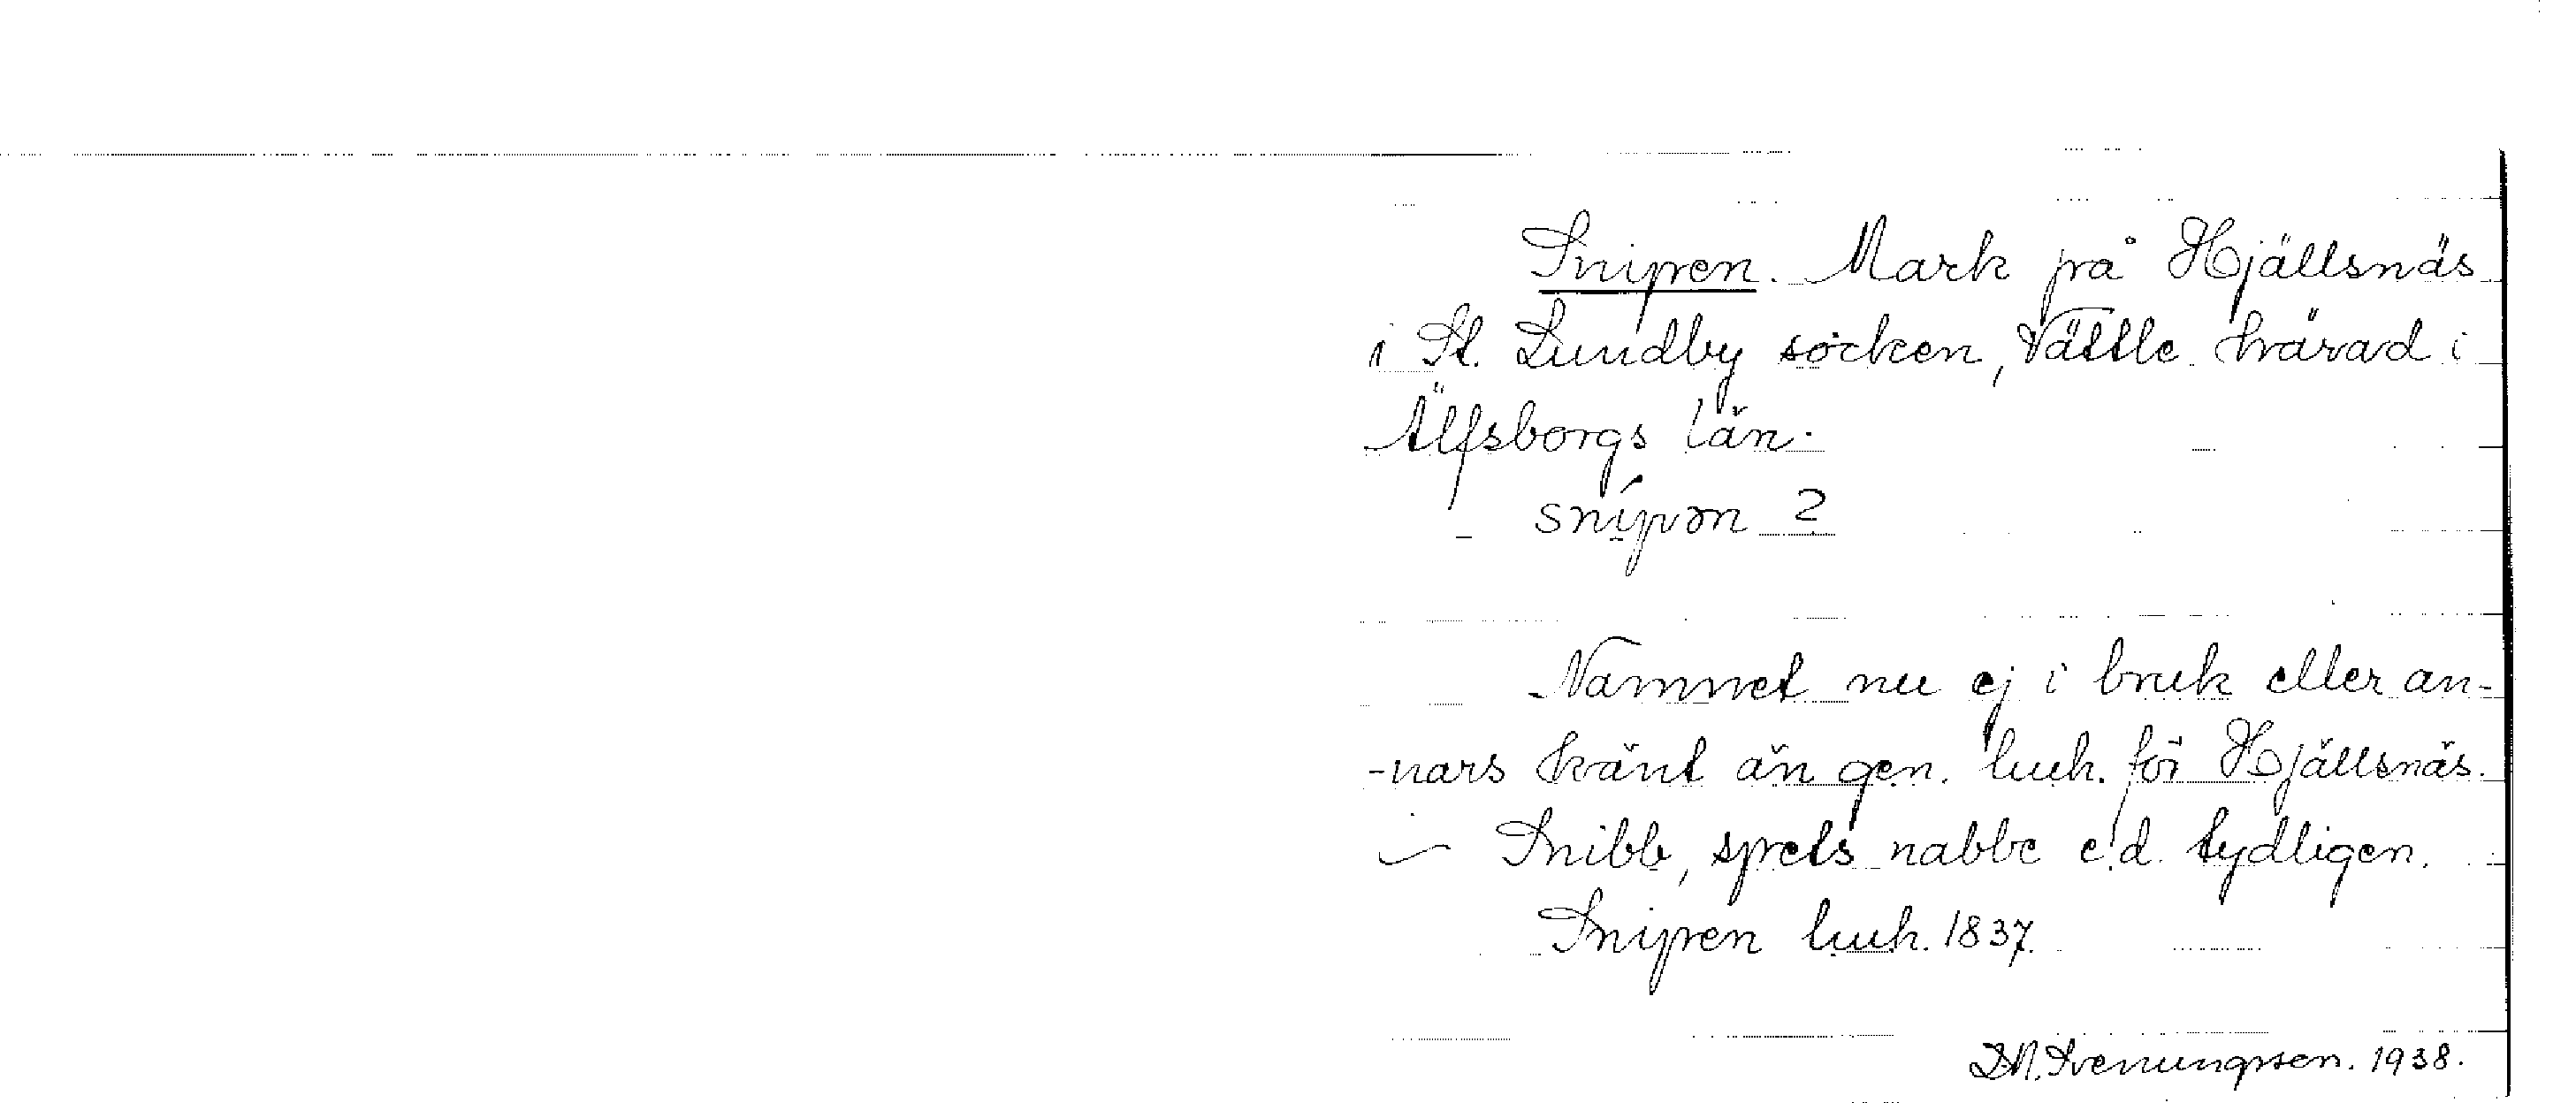 Snipen. Mark på Hjällsnäs
i St. Lundby socken, Vättle härad i
Älfsborgs län.
snípən 2
Namnet nu ej i bruk eller an-
-nars känt än gen. luh. för Hjällsnäs.
Snibb, spets nabbe e.d. tydligen.
Snipen luh. 1837.
Svenungsson. 1938.